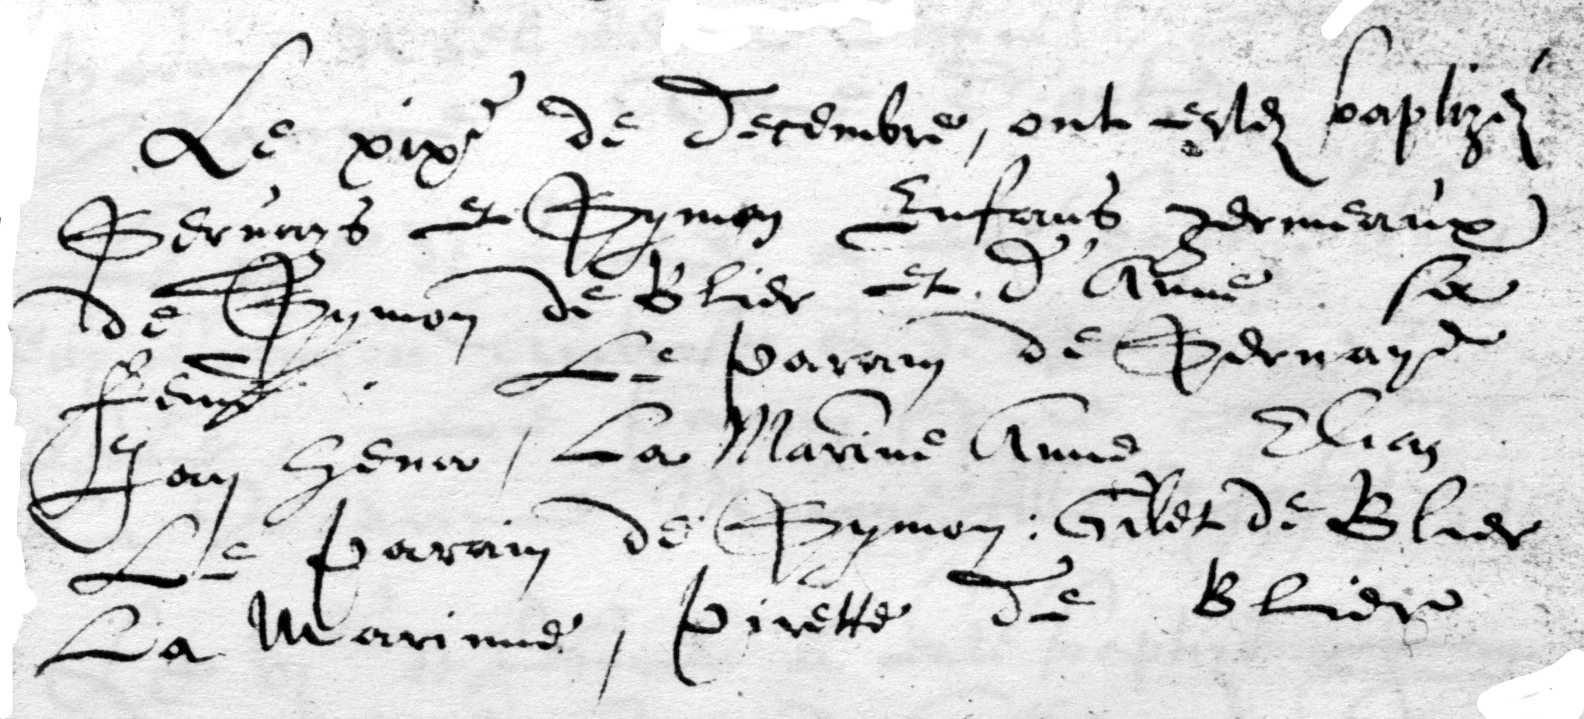 Le xixe de Decembre, ont estez baptizez
Servays et Symon Enfans germeaux
de Symon de Blier et d'Anne sa
feme. Le parain de Servays
Jan Hena, La Marine Anne
Le parain de Symon: Gilet de Blier
La Marinne, Pirette de Blier